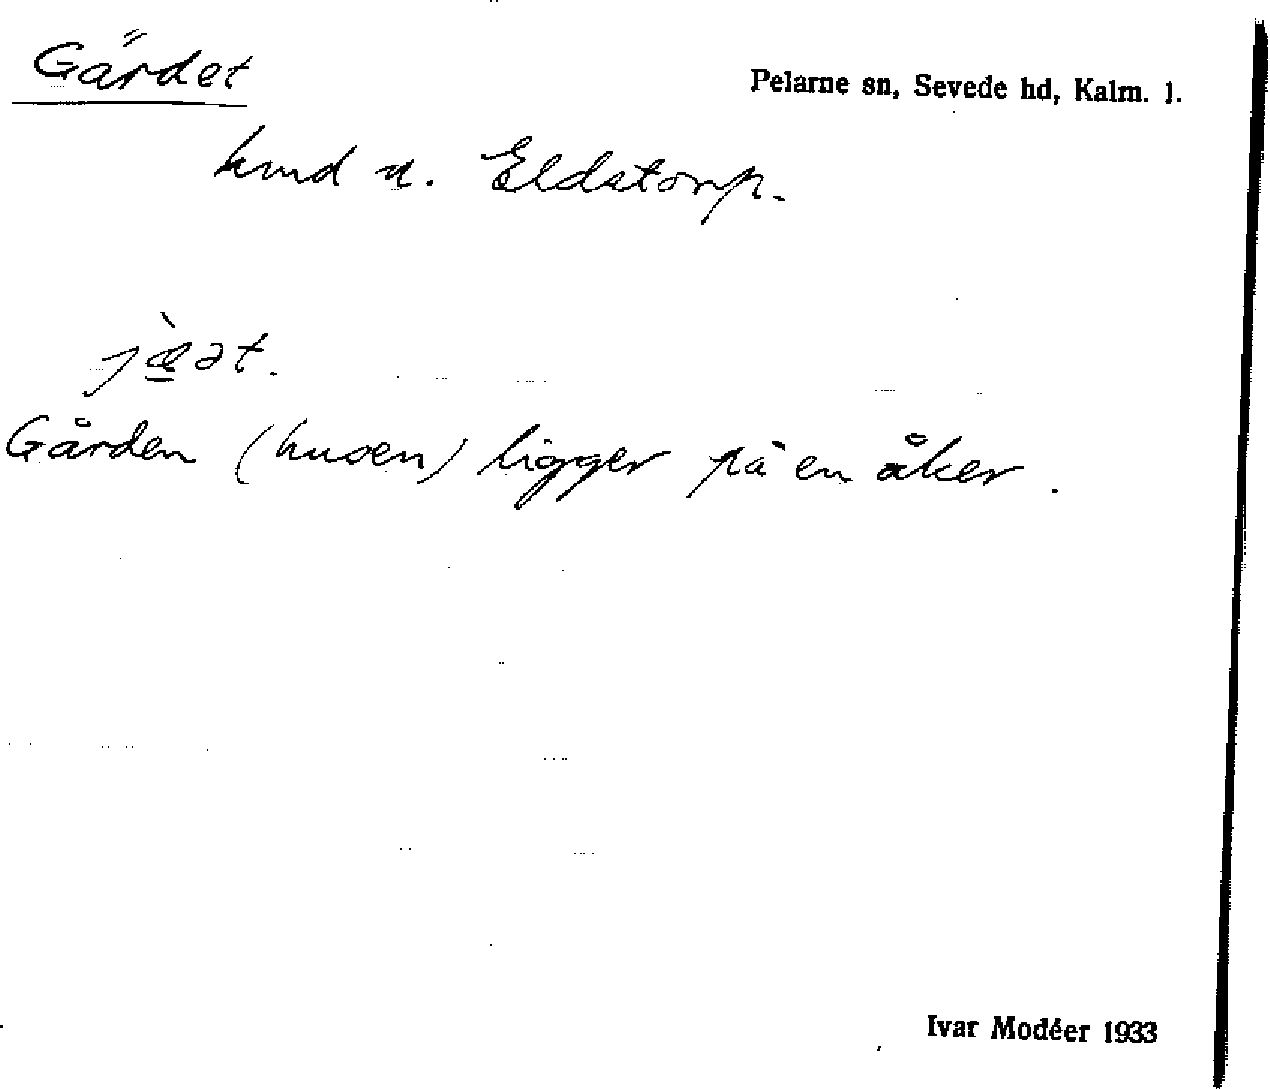 Gärdet
Pelarne sn, Sevede hd, Kalm. l.
hmd u. Eldstorp.
jæ̀ət.
Gården (husen) ligger på en åker.
Ivar Modéer 1933